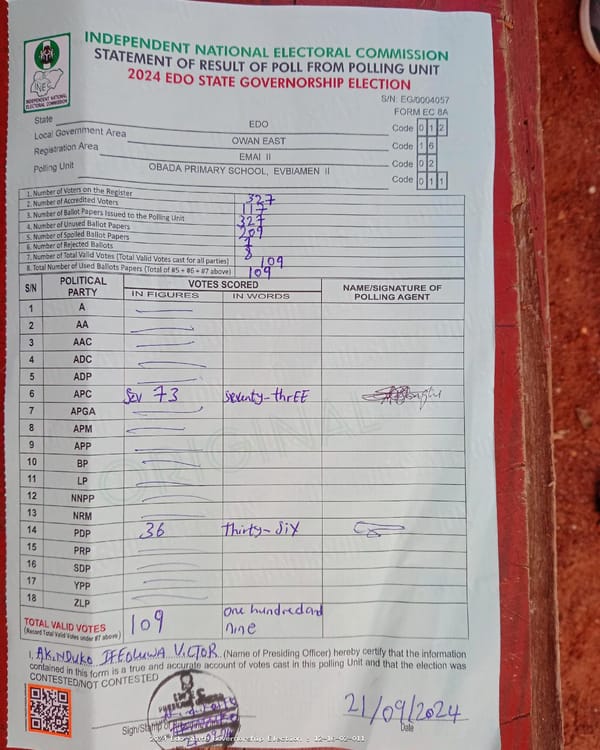 INDEPENDENT NATIONAL ELECTORAL COMMISSION
STATEMENT OF RESULT OF POLL FROM POLLING UNIT
2024 EDO STATE GOVERNORSHIP ELECTION
INEC
INDEPENDENT NATIONAL ELECTORAL COMMISSION
S/N: EG/0004057
FORM EC 8A
State EDO Code 0 1 2
Local Government Area OWAN EAST Code 1 6
Registration Area EMAI II Code 0 2
Polling Unit OBADA PRIMARY SCHOOL, EVBIAMEN II Code 0 1 1
1. Number of Voters on the Register 327
2. Number of Accredited Voters 117
3. Number of Ballot Papers Issued to the Polling Unit 327
4. Number of Unused Ballot Papers 209
5. Number of Spoiled Ballot Papers 1
6. Number of Rejected Ballots 8
7. Number of Total Valid Votes (Total Valid Votes cast for all parties) 109
8. Total Number of Used Ballots Papers (Total of #5 + #6 + #7 above) 109
S/N POLITICAL PARTY VOTES SCORED NAME/SIGNATURE OF POLLING AGENT
IN FIGURES IN WORDS
1 A
2 AA
3 AAC
4 ADC
5 ADP
6 APC Sev 73 Seventy-thrEE
7 APGA
8 APM
9 APP
10 BP
11 LP
12 NNPP
13 NRM
14 PDP 36 Thirty-Six
15 PRP
16 SDP
17 YPP
18 ZLP
ORIGINAL
TOTAL VALID VOTES 109 one hundred and
(Record Total Valid Votes under #7 above) nine
I, AKINDUKO IFEOLUWA VICTOR (Name of Presiding Officer) hereby certify that the information
contained in this form is a true and accurate account of votes cast in this polling Unit and that the election was
CONTESTED/NOT CONTESTED
21/09/2024
Sign/Stamp of Date
2024 Edo State Governorship Election - 12-16-02-011